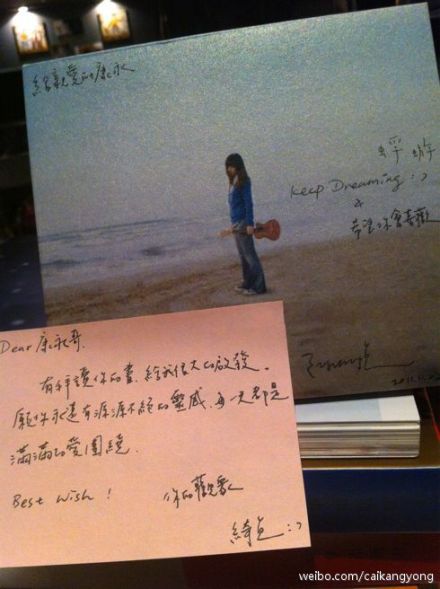 給親愛的康永
蜉蝣
Keep Dreaming :)
&
希望你會喜歡
Dear 康永哥,
有拜讀你的書, 給我很大的啟發。
願你永遠有源源不絕的靈感, 每天都是
滿滿的愛圍繞.
Best Wish! 你的觀眾
綺貞 :)
weibo.com/caikangyong